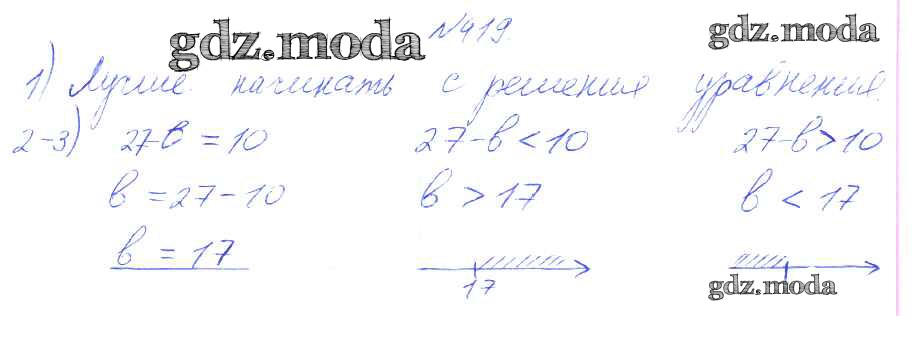 gdz.moda №419. gdz.moda
1) Лучше начинать с решения уравнения.
2-3) 27-b = 10 27-b < 10 27-b > 10
b = 27 - 10 b > 17 b < 17
b = 17
17 gdz.moda